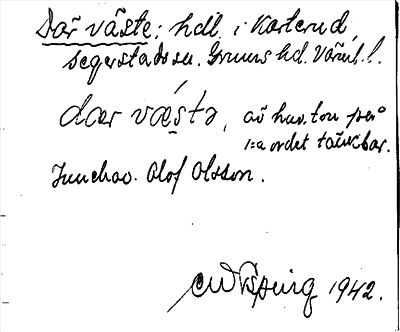 Dar väste: hdl. i Karterud,
Segerstads sn. Grums hd. Värml. l.
dær vǽstə, av huv.ton på
1:a ordet tänkbar.
Inneháv. Olof Olsson.
1942.